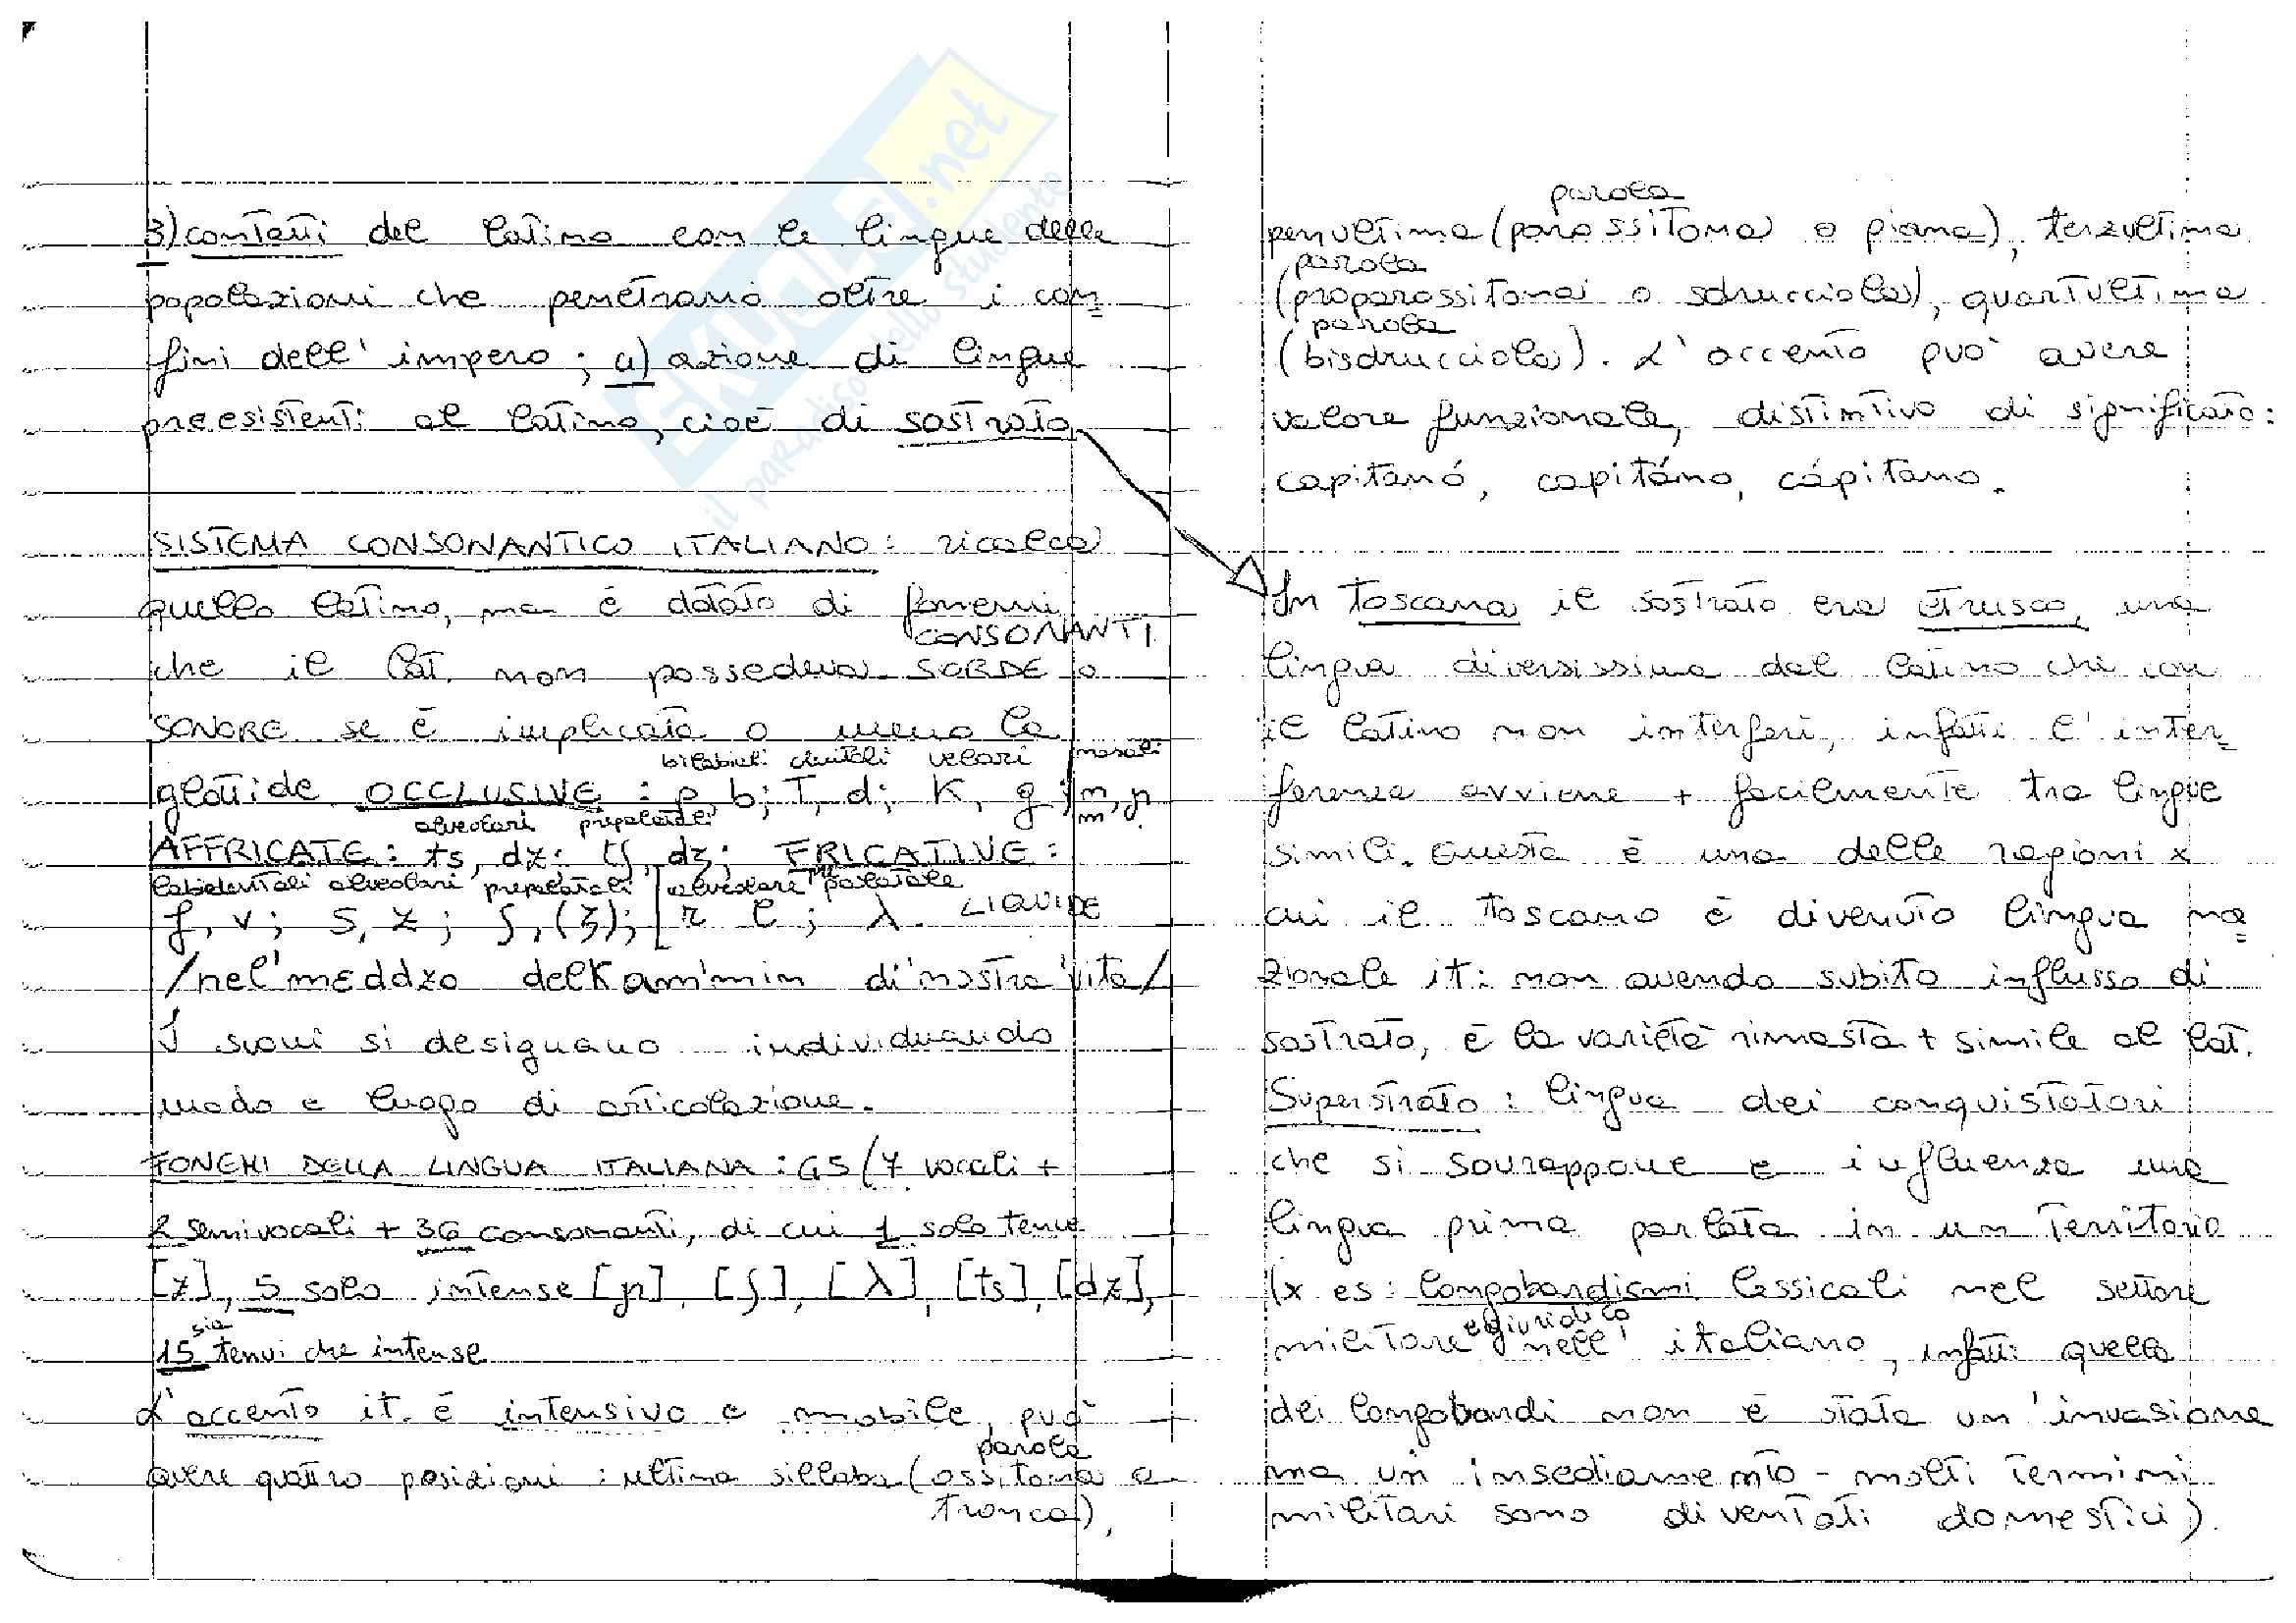 3) contatti del latino con le lingue delle
popolazioni che penetrano oltre i con=
fini dell'impero; 4) azione di lingue
preesistenti al latino, cioè di sostrato
SISTEMA CONSONANTICO ITALIANO: ricalca
quello latino, ma è dotato di fonemi
che il lat. non possedeva. CONSONANTI SORDE o
SONORE se è implicata o meno la
bilabiali dentali velari nasali
glottide OCCLUSIVE: p, b; t, d; K, g; m, n, ɲ
alveolari prepalatali
AFFRICATE: ts, dz; tʃ, dʒ; FRICATIVE:
labidentali alveolari prepalatali alveolare palatale
f, v; s, z; ʃ, (ʒ); r l; λ. LIQUIDE
/nel'mɛddzo delkam'min di'nostra'vita/
I suoni si designano individuando
modo e luogo di articolazione.
FONEMI DELLA LINGUA ITALIANA: 45 (7 vocali +
2 semivocali + 36 consonanti, di cui 1 solo tenue
[z], 5 solo intense [ɲ], [ʃ], [λ], [ts], [dz],
15 sia tenui che intense
L'accento it. è intensivo e mobile, può
avere quattro posizioni: ultima sillaba (parola ossitona o
tronca),
penultima (parola parossitona o piana), terzultima
(parola proparossitona o sdrucciola), quartultima
(parola bisdrucciola). L'accento può avere
valore funzionale, distintivo di significato:
capitanó, capitáno, cápitano.
In Toscana il sostrato era etrusco, una
lingua diversissima dal latino che con
il latino non interferì, infatti l'inter=
ferenza avviene + facilmente tra lingue
simili. Questa è una delle ragioni x
cui il toscano è divenuto lingua na=
zionale it: non avendo subìto influsso di
sostrato, è la varietà rimasta + simile al lat.
Superstrato: lingua dei conquistatori
che si sovrappone e influenza una
lingua prima parlata in un territorio
(x es: longobardismi lessicali nel settore
militare e giuridico nell'italiano, infatti quella
dei longobardi non è stata un'invasione
ma un insediamento - molti termini
militari sono diventati domestici).
SKUOLA.net
il paradiso dello studente